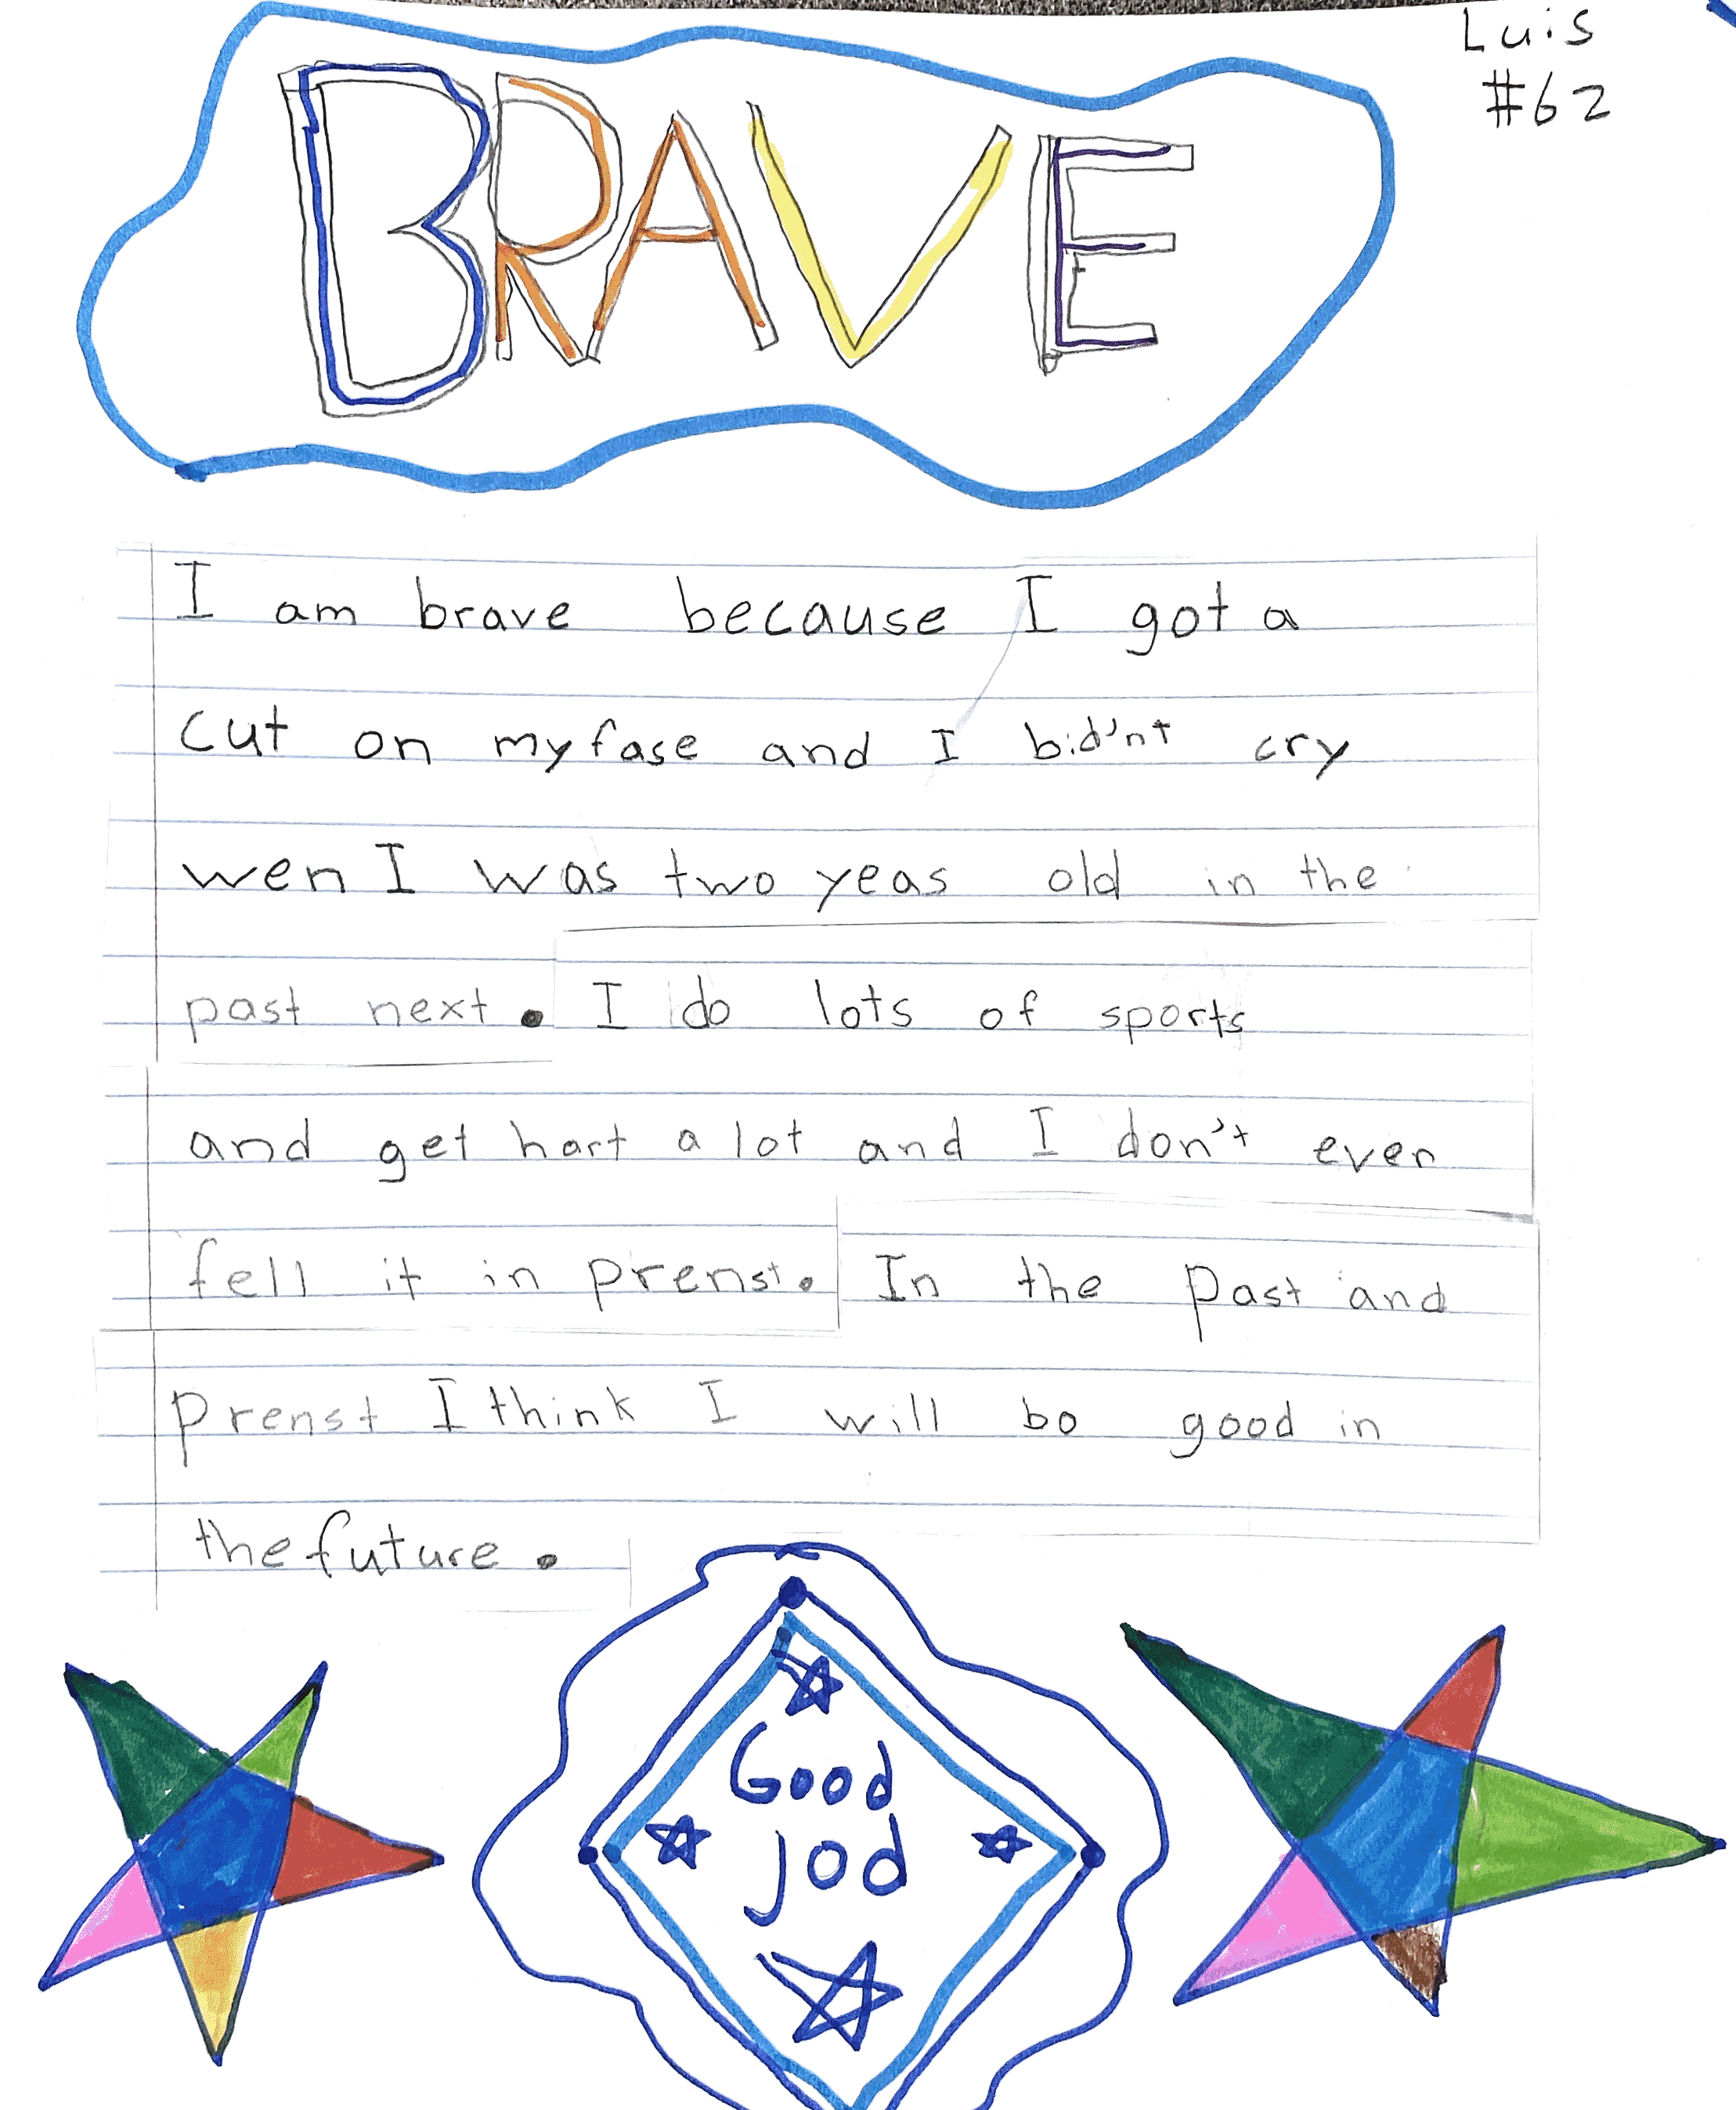 Luis
#62
BRAVE
I am brave because I got a
cut on my fase and I bid'nt cry
wen I was two yeas old in the
past next. I do lots of sports
and get hart a lot and I don't even
fell it in prenst. In the Past and
Prenst I think I will bo good in
the future.
Good
jod